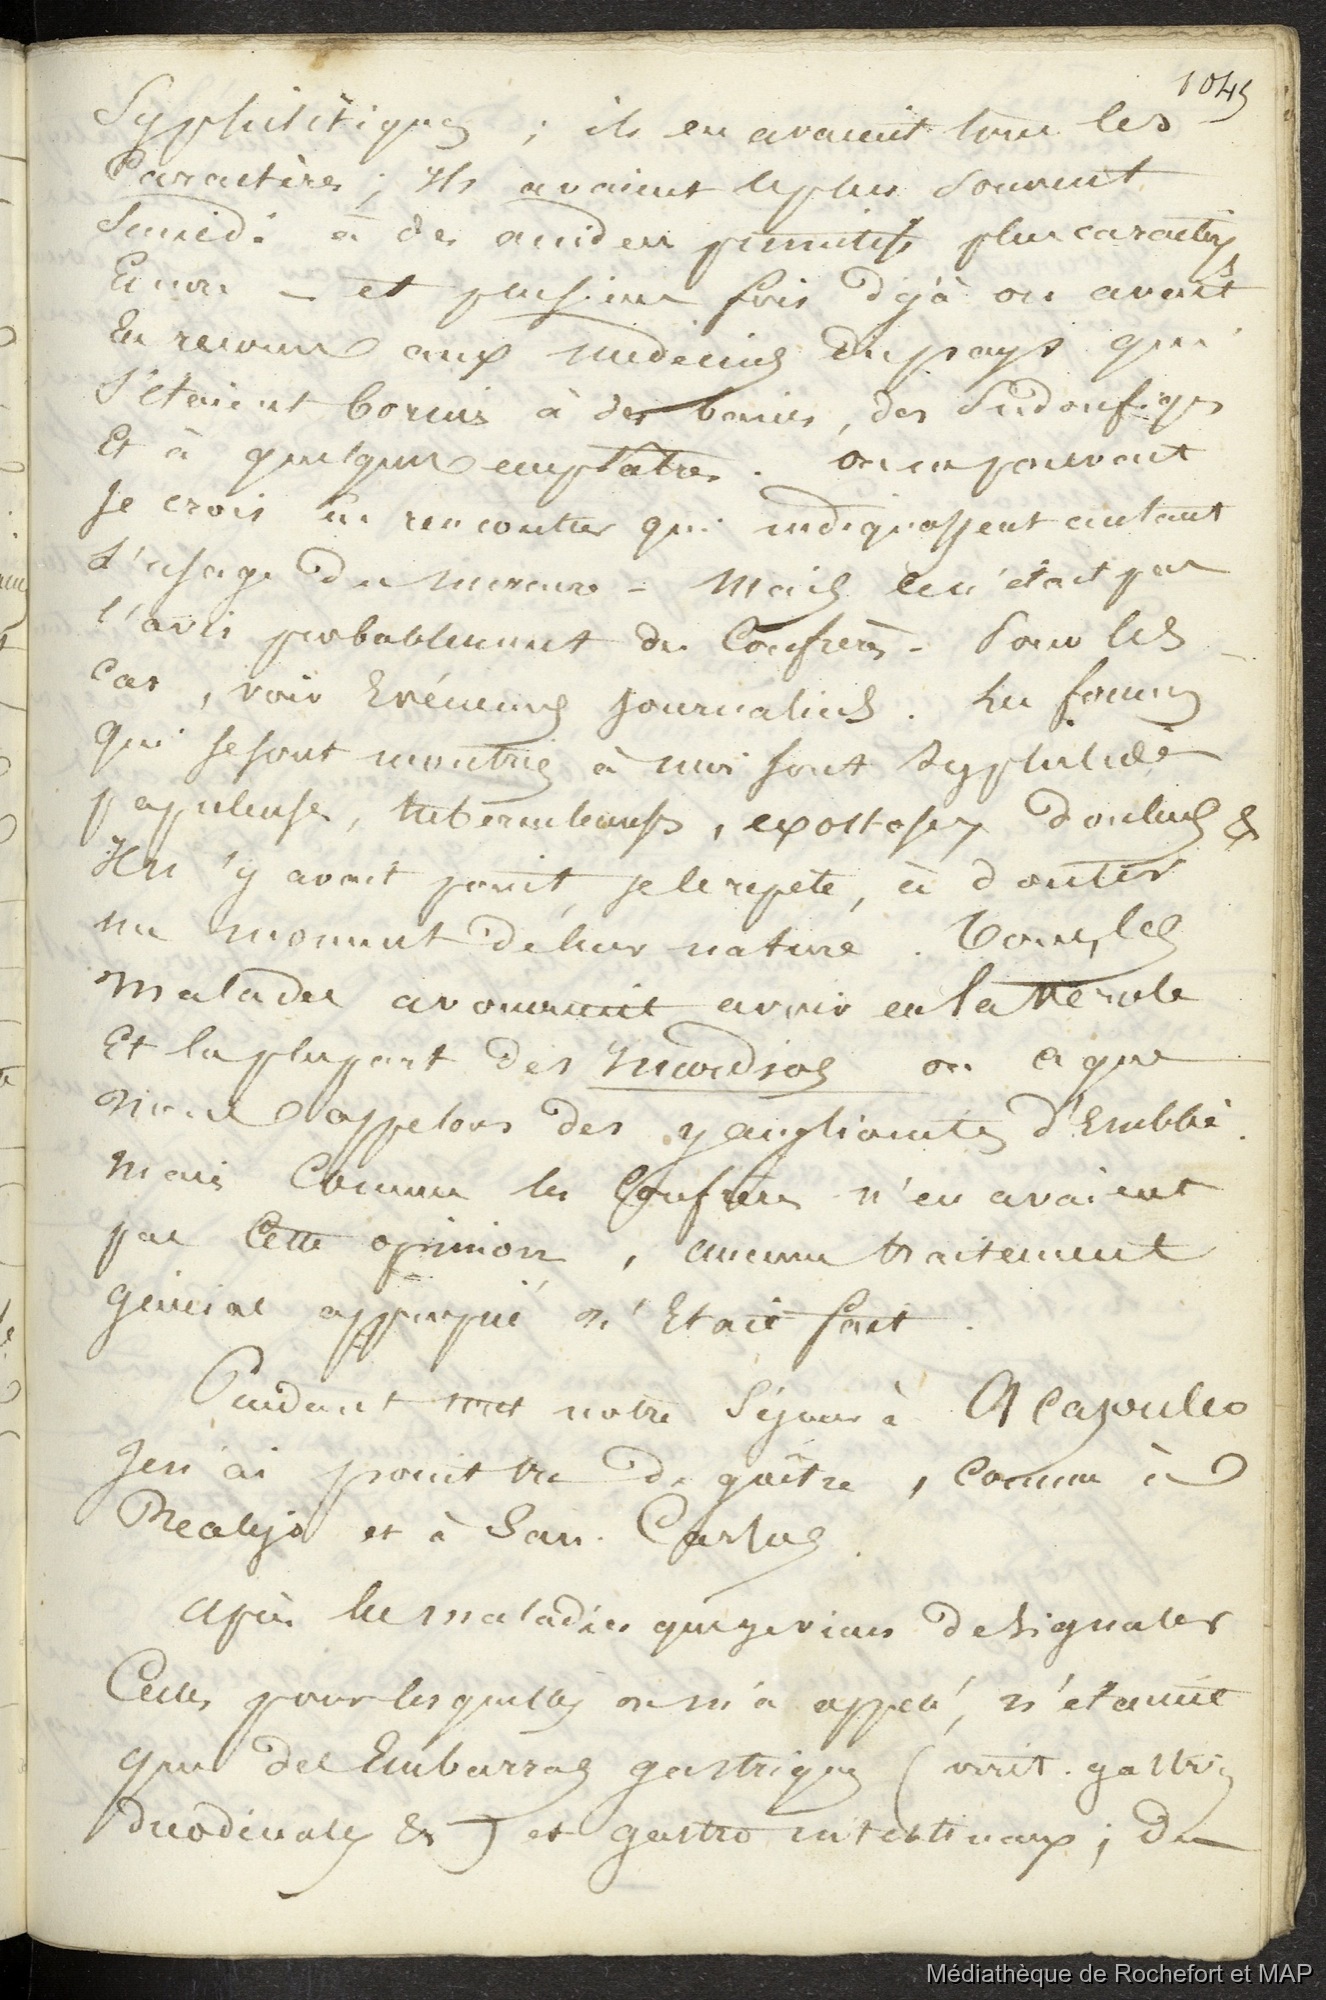 1045
Syphilitiques ; ils en avaient tous les
Caractères ; Ils avaient le plus souvent
Succédé à des accidens primitifs plus caractérisés
Encore — et plusieurs fois déjà on avait
Eu recours aux médecins du pays qui
s'étaient bornés à des bains, des Sudorifiques
Et à quelques emplâtres. on ne pouvait
Je crois en rencontrer qui indiquassent autant
L'usage du mercure = Mais ce n'était pas
l'avis probablement du Confrère - Pour les
cas, voir Evénemens journaliers. Les formes
qui se sont montrées à moi sont Syphilides
papuleuses, tuberculeuses, exostoses, douleurs &
Il n'y avait point, je le repète, à douter
un moment de leur nature. Tous les
malades avouaient avoir eu la vérole
Et la plupart des Incordios ou ce que
nous appelons des ganglionites d'Emblée.
Mais Comme les Confrères n'en avaient
pas Cette opinion, aucun traitement
général approprié n'Etait fait.
Pendant notre Séjour à Acapulco
Je n'ai point vu de goître, comme à
Realejo et à San. Carlos.
Après les maladies que je viens de signaler
Celles pour lesquelles on m'a appelé, n'étaient
que des Embarras gastriques ( irrit. gastro
duodénales &c ) et gastro intestinaux ; Du
Médiathèque de Rochefort et MAP